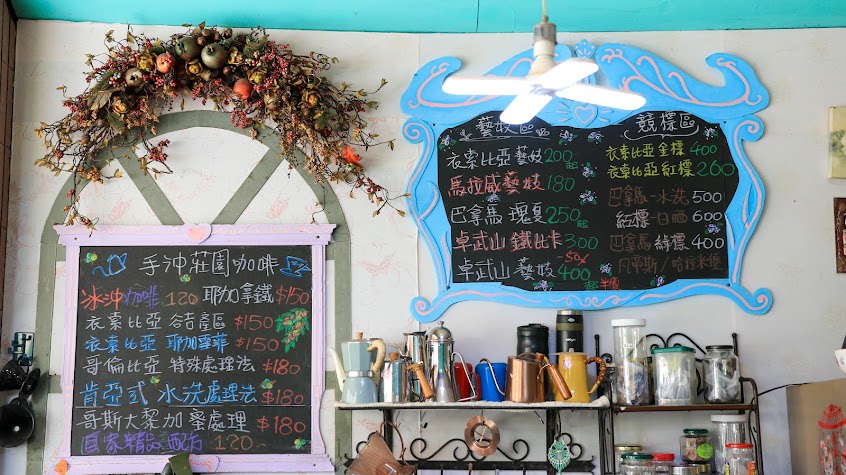 手沖莊園咖啡
冰沖咖啡 120 耶加拿鐵 $150
衣索比亞 谷吉產區 $150
衣索比亞 耶加雪菲 $150
哥倫比亞 特殊處理法 $180
肯亞式 水洗處理法 $180
哥斯大黎加 蜜處理 $180
自家精品配方 120~
藝妓
衣索比亞 藝妓 200起
馬拉威藝妓 180
巴拿馬 瑰夏 250起
卓武山 鐵比卡 300
卓武山 藝妓 400起
-50%
競標區
衣索比亞金標 400
衣索比亞紅標 260
巴拿馬-水洗 500
紅標-日晒 600
巴拿馬 綠標 400